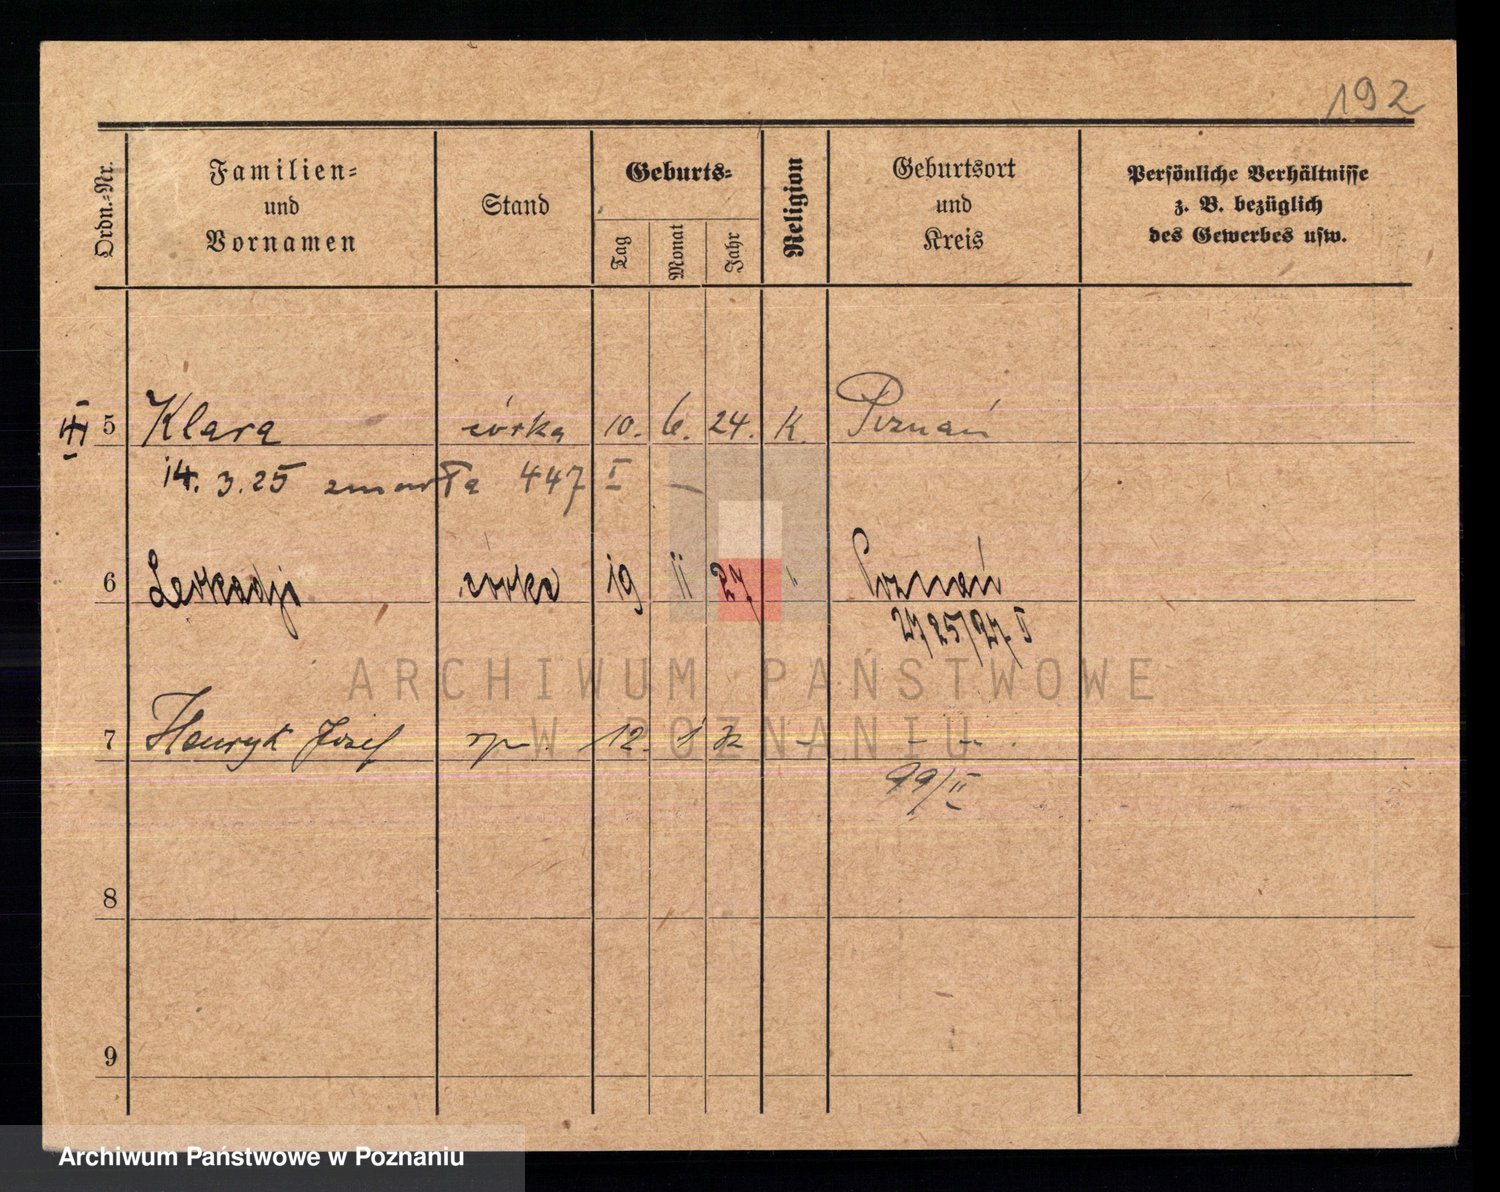 192
Ordn.-Nr.
Familien=
und
Vornamen
Stand
Geburts=
Tag
Monat
Jahr
Religion
Geburtsort
und
Kreis
Persönliche Verhältnisse
z. B. bezüglich
des Gewerbes usw.
5 Klara córka 10. 6. 24. K. Poznań
14. 3. 25 zmarła 447 I
6 Leokadja córka 19 II 27 Poznań
2725/27 I
ARCHIWUM PAŃSTWOWE
W POZNANIU
7 Henryk Józef 12. 1
99/II
8
9
Archiwum Państwowe w Poznaniu